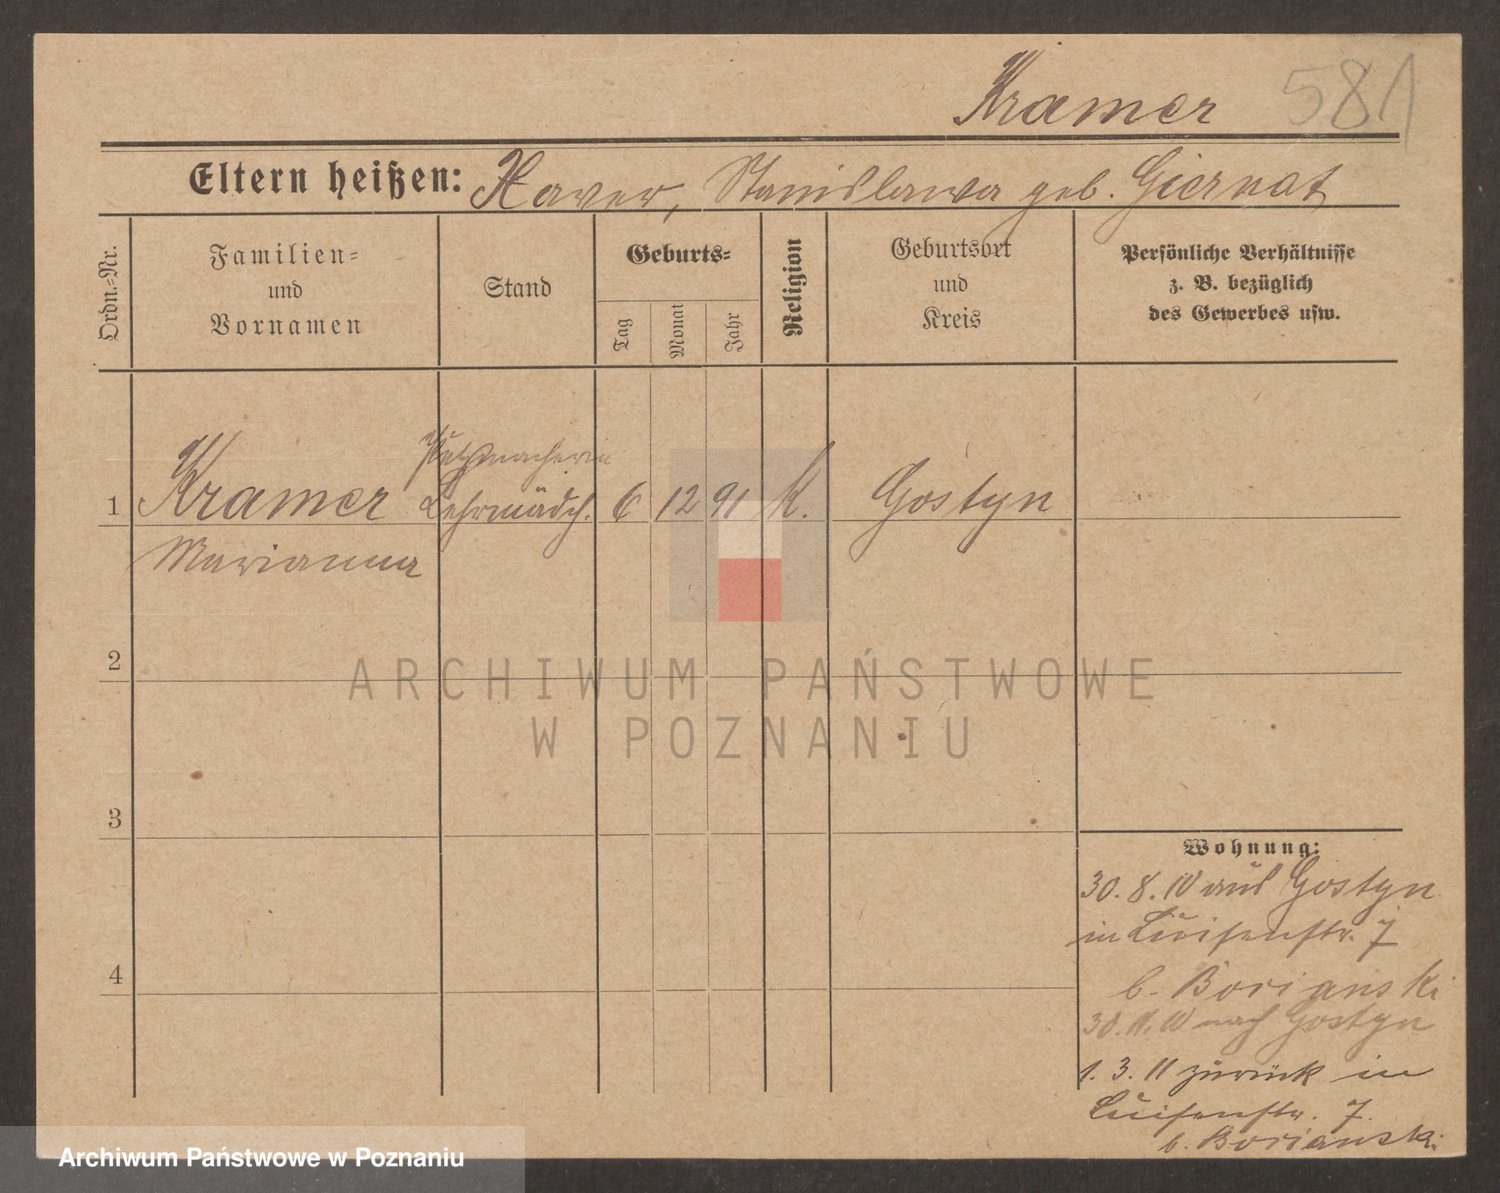 Kramer 581
Eltern heißen: Xaver, Stanislawa geb. Giernat
Ordn.-Nr.
Familien-
und
Vornamen
Stand
Geburts-
Tag
Monat
Jahr
Religion
Geburtsort
und
Kreis
Persönliche Verhältnisse
z. B. bezüglich
des Gewerbes usw.
Putzmacherin
1 Kramer Lehrmädch. 6 12 91 K. Gostyn
Marianna
2
ARCHIWUM PAŃSTWOWE
W POZNANIU
3
Wohnung:
30. 8. 10 aus Gostyn
in Luisenstr. 7
b. Borianski
4
30. 11. 10 nach Gostyn
1. 3. 11 zurück in
Luisenstr. 7.
b. Borianski
Archiwum Państwowe w Poznaniu